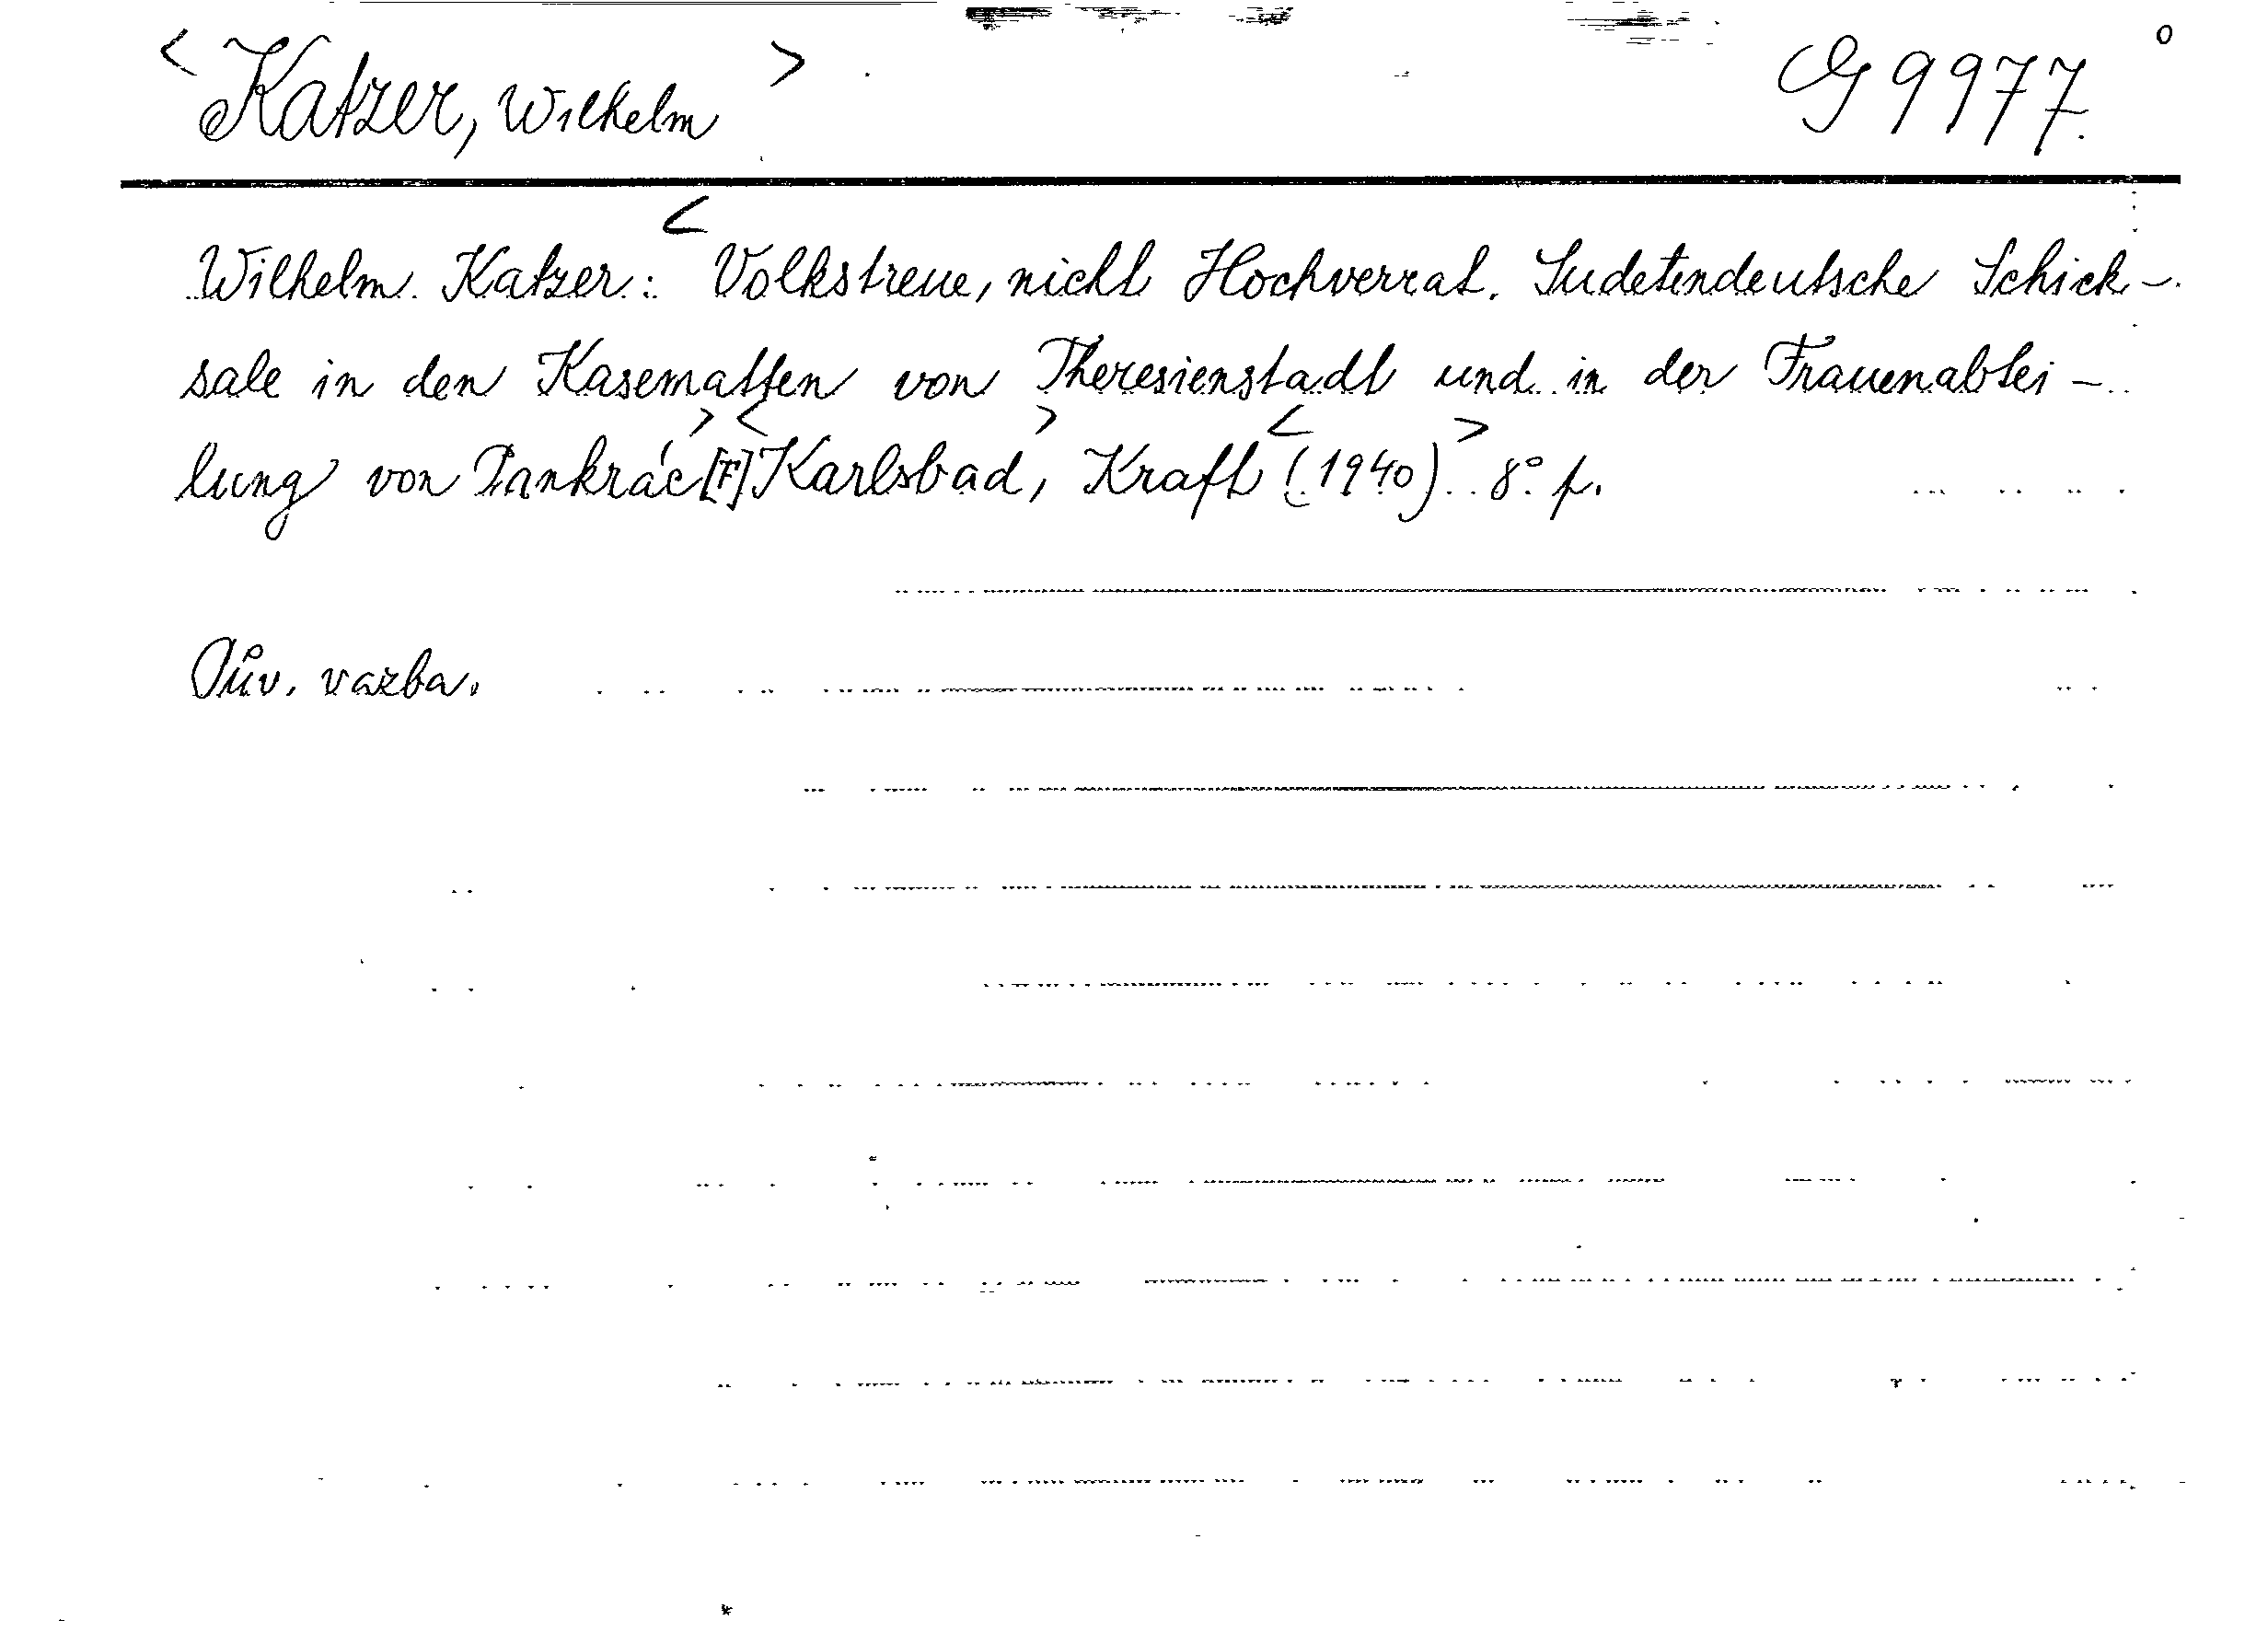 <Katzer, Wilhelm> G 9977.
Wilhelm Katzer: <Volkstreue, nicht Hochverrat. Sudetendeutsche Schick-
sale in den Kasematten von Theresienstadt und in der Frauenabtei-
lung von Pankrác> [F] <Karlsbad>, Kraft <(1940)> 8° p.
Pův. vazba.